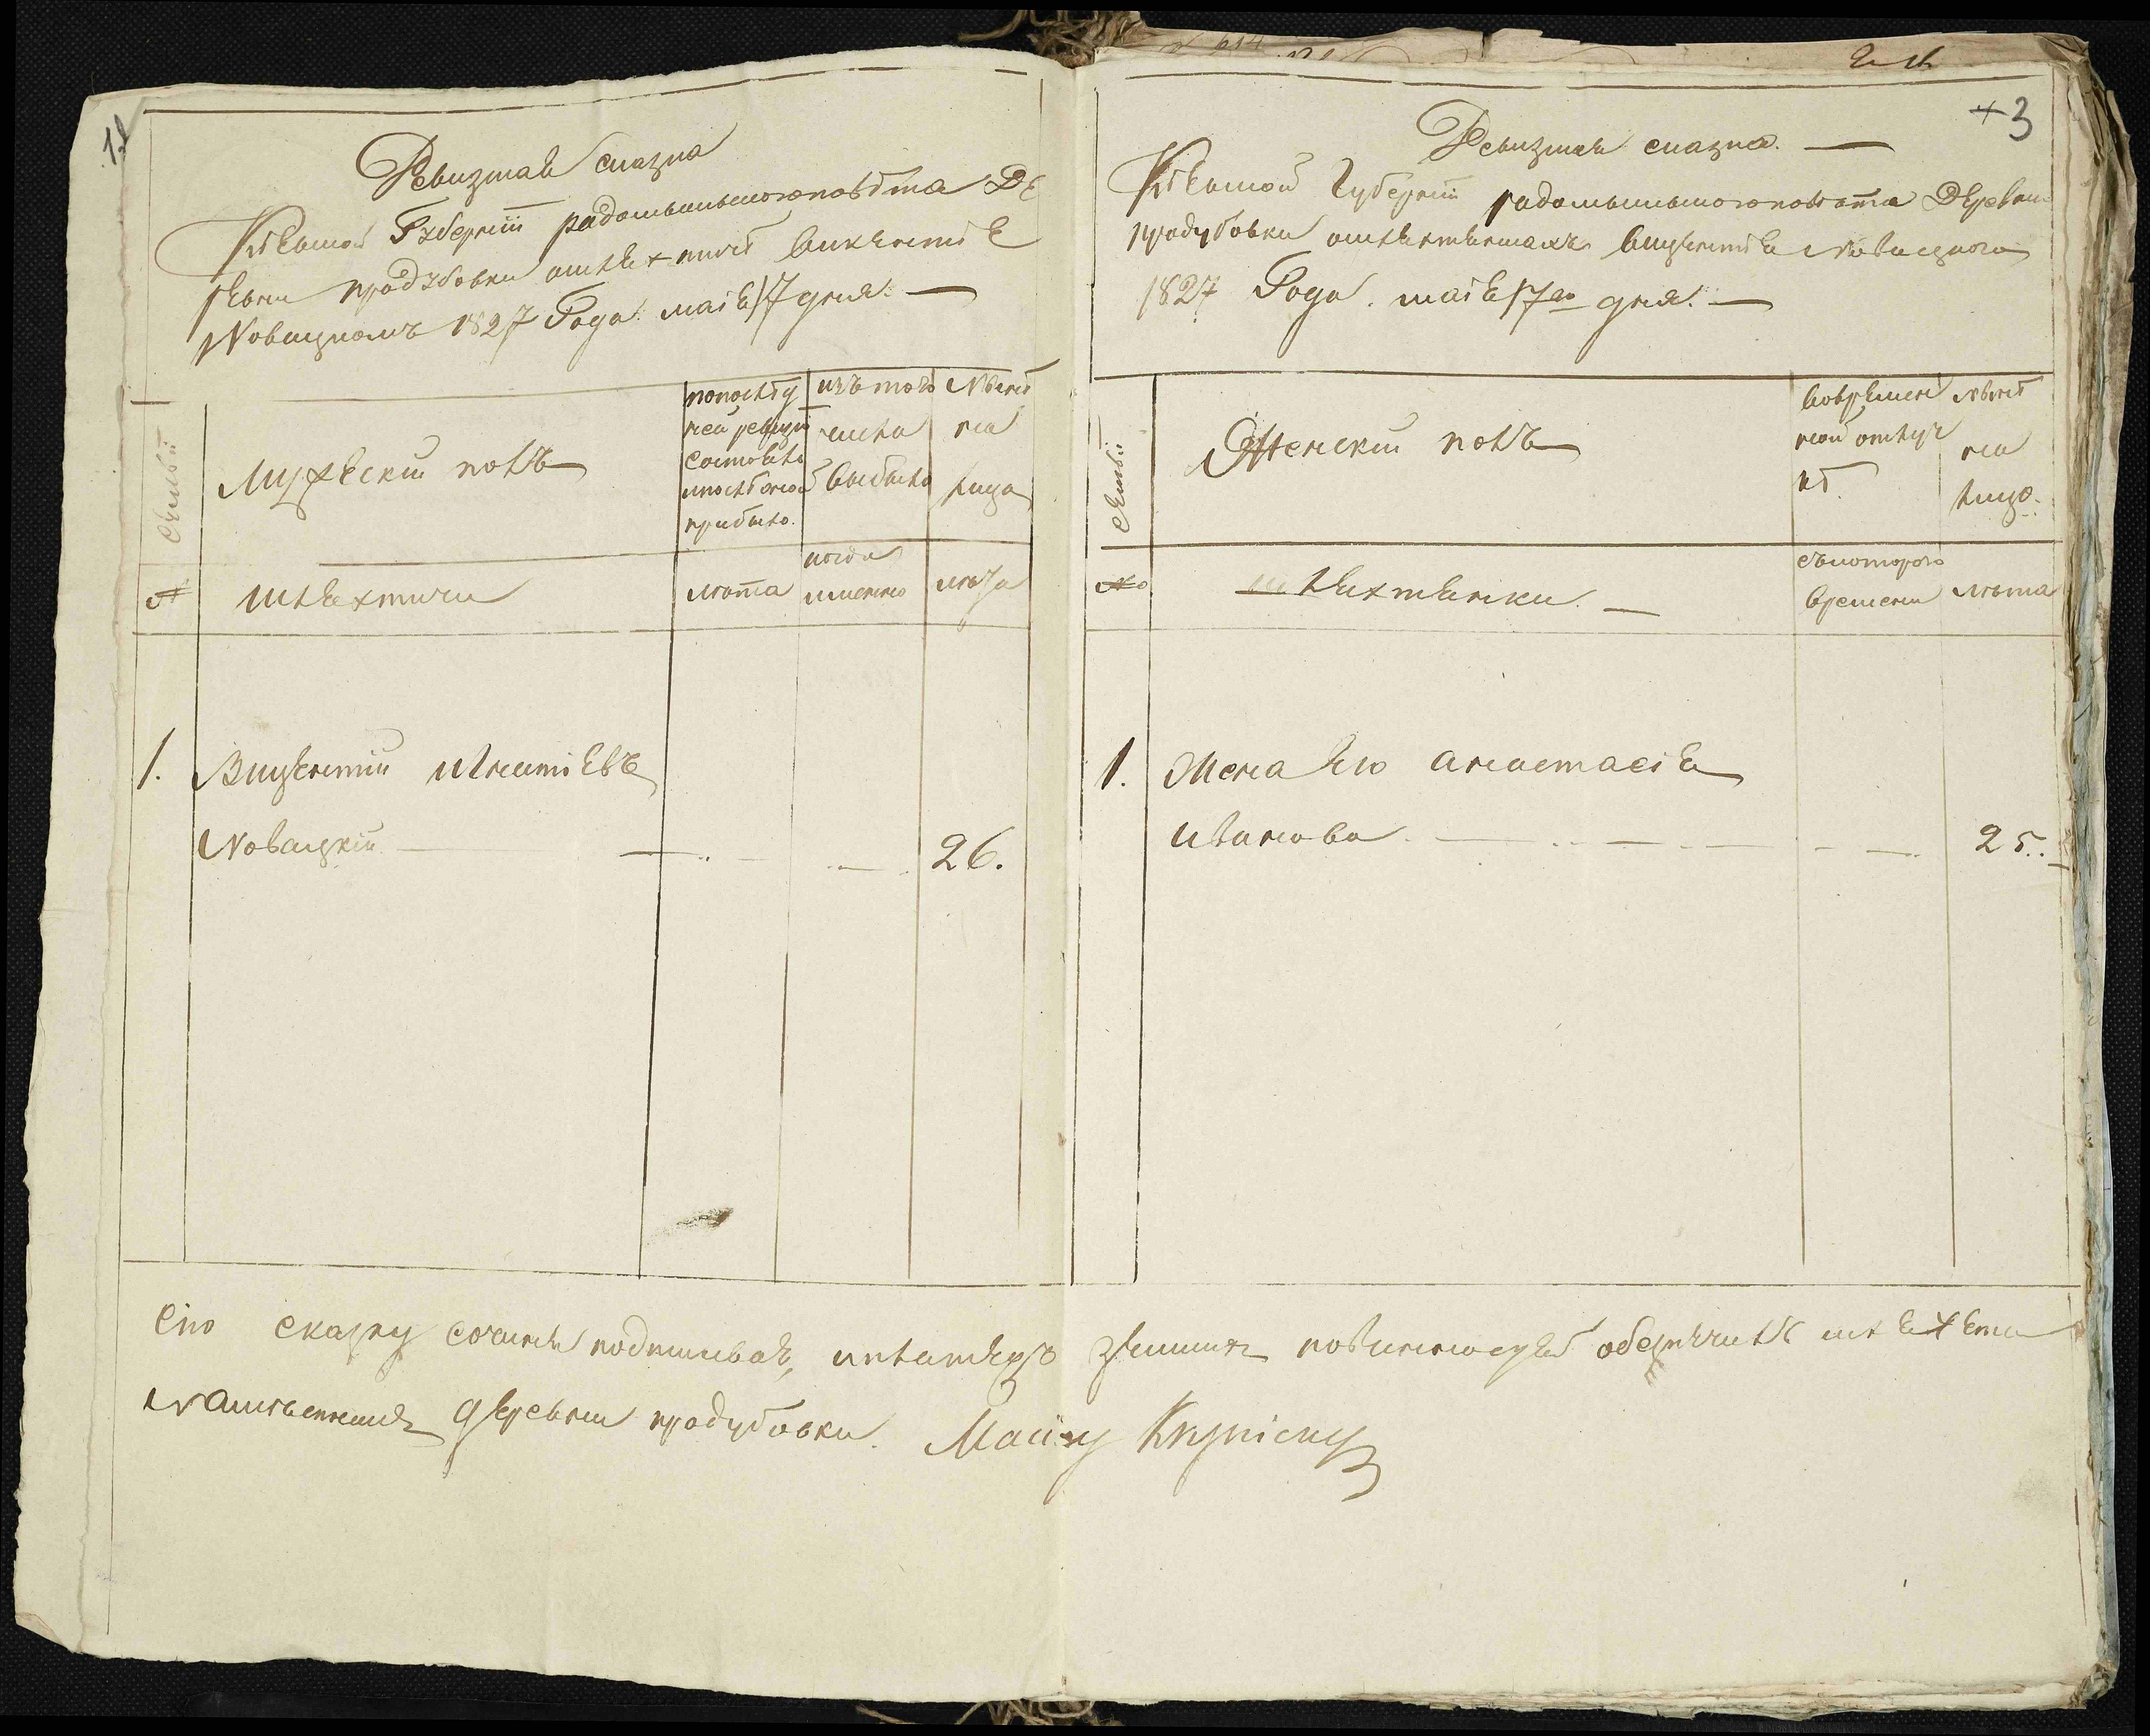 Ревизтая сказка
Кіевьской Губерніи радомысльского повѣта Де
ревни продубовки о шляхтичѣ Викентіе
Новицкомъ 1827 Года маія 17 дня.
Семьи
Мужескій полъ
по послѣд
ней ревизіи
состояло
и послѣ оной
прибыло.
изъ того
числа
выбыло
Нынѣ
на
лицо
№
шляхтичи
лѣта
когда
именно
лѣта
1. Вицентій Игнатіевъ
Новацкій 26.
3
Ревизтая сказка.
Кіевьской Губерніи радомысльского повѣта Деревни
продубовки о шляхтянкахъ Вицентія Новацкого
1827 Года маія 17го дня.
Семьи
Женскій полъ
во времен
ной отлуч
кѣ.
нынѣ
на
лицо.
№
шляхтянки.
съ которого
времени
лѣта
1. Жена его анастасія
иванова 25.
Сію сказку сочиня подписалъ,
деревни продубовки.